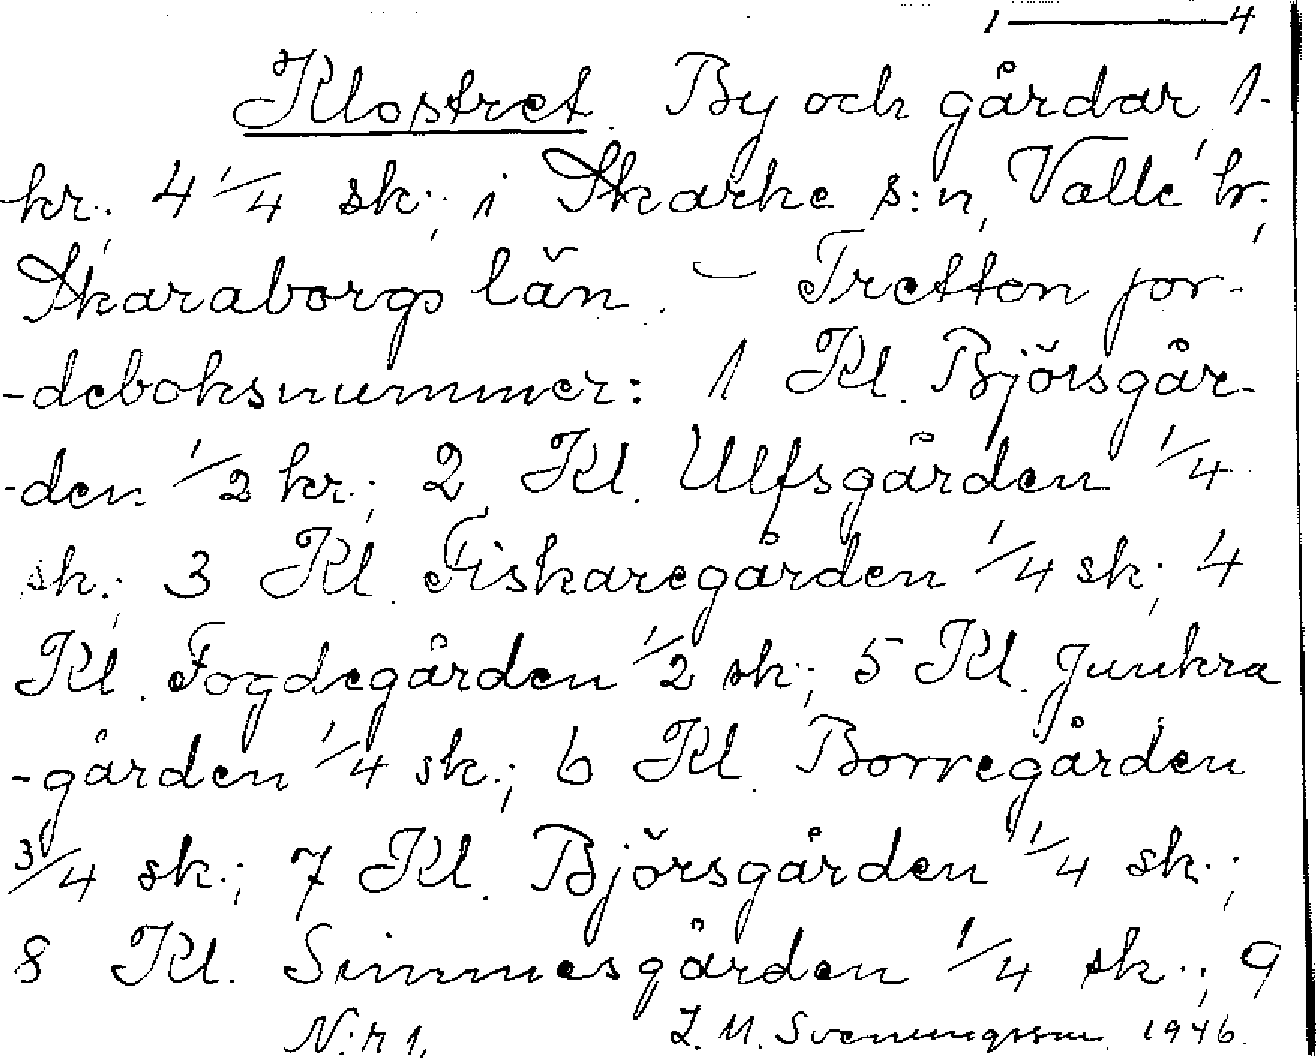 1 — 4
Klostret. By och gårdar, 1
kr. 4 1/4 sk., i Skarke s:n, Valle hr.,
Skaraborgs län. — Tretton jor-
-deboksnummer: 1 Kl. Björsgår-
-den 1/2 kr.; 2 Kl. Ulfsgården 1/4
sk.; 3 Kl. Fiskaregården 1/4 sk.; 4
Kl. Fogdegården 1/2 sk.; 5 Kl. Junkra
-gården 1/4 sk.; 6 Kl. Borregården
3/4 sk.; 7 Kl. Björsgården 1/4 sk.;
8 Kl. Simmesgården 1/4 sk.; 9
N:r 1. L. M. Svenungsson 1946.